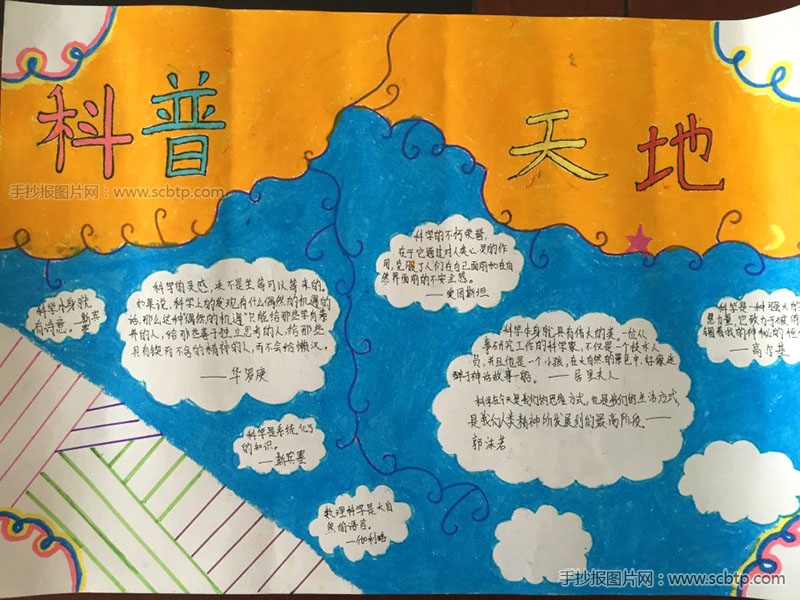 科普
天地
手抄报图片网：www.scbtp.com
科学的不朽荣誉，
在于它通过对人类心灵的作
用，克服了人们在自己面前和在自
然界面前的不安全感。
——爱因斯坦
科学的灵感，决不是坐等可以等来的。
如果说，科学上的发现有什么偶然的机遇的
话，那么这种“偶然的机遇”只能给那些学有素
养的人，给那些善于独立思考的人，给那些
具有锲而不舍的精神的人，而不会给懒汉。
——华罗庚
科学本身就
有诗意。——斯宾
塞
科学是一种强大的
高尔基
科学本身就具有伟大的美。一位从
事研究工作的科学家，不仅是一个技术人
员，并且他是一个小孩，在大自然的景色中，好像迷
醉于神话故事一般。——居里夫人
科学在今天是我们的思维方式，也是我们的生活方式，
是我们人类精神所发展到的最高阶段。——
郭沫若
科学是系统化了
的知识。
——斯宾塞
数理科学是大自
然的语言。
——伽利略
手抄报图片网：www.scbtp.com